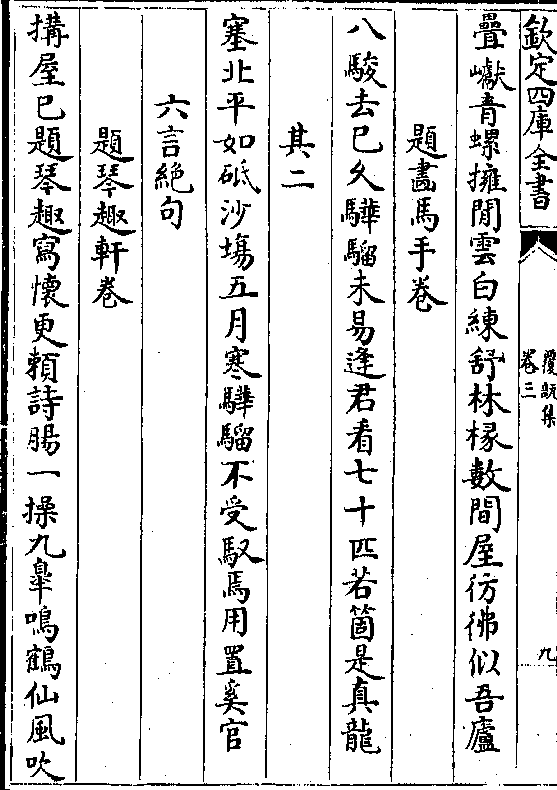 欽定四庫全書
覆瓿集
卷三
九
疊巘青螺擁閒雲白練舒林椽數間屋彷彿似吾廬
題畫馬手卷
八駿去已久驊騮未易逢君看七十匹若箇是真龍
其二
塞北平如砥沙塲五月寒驊騮不受馭焉用置奚官
六言絶句
題琴趣軒卷
搆屋已題琴趣寫懷更頼詩腸一操九臯鳴鶴仙風吹